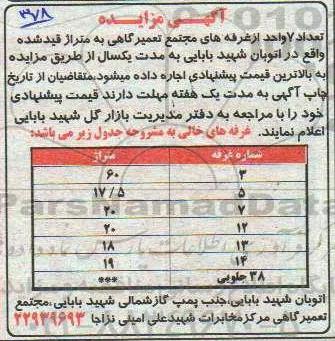 آگهی مزایده
۳۷/۸
تعداد ۷ واحد از غرفه های مجتمع تعمیرگاهی به متراژ قید شده
واقع در اتوبان شهید بابایی به مدت یکسال از طریق مزایده
به بالاترین قیمت پیشنهادی اجاره داده میشود.متقاضیان از تاریخ
چاپ آگهی به مدت یک هفته مهلت دارند قیمت پیشنهادی
خود را با مراجعه به دفتر مدیریت بازار گل شهید بابایی
اعلام نمایند. غرفه های خالی به مشروحه جدول زیر می باشد:
شماره غرفه متراژ
۳ ۶۰
۵ ۱۷/۵
۷ ۲۰
۱۲ ۲۰
۱۳ ۱۸
۱۴ ۱۹
۳۸ جلویی ***
اتوبان شهید بابایی،جنب پمپ گازشمالی شهید بابایی،مجتمع
تعمیرگاهی مرکز مخابرات شهید علی امینی نزاجا ۲۲۹۳۹۶۹۳
ParsNamadData